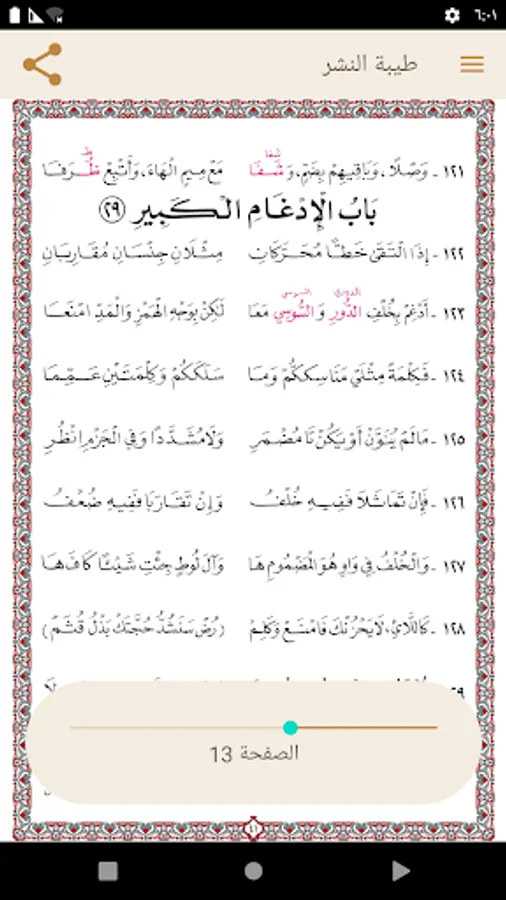 ٦:٠١
طيبة النشر
١٢١ - وَصْلًا، وَبَاقِيهِمْ بِضَمٍّ، وَشَفَا مَعْ مِيمِ الْهَاءَ، وَأَتْبِعْ ظُرَفَا
بَابُ الْإِدْغَامِ الْكَبِيرِ (٢٩)
١٢٢ - إِذَا الْتَقَى خَطًّا مُحَرَّكَانِ مِثْلَانِ جِنْسَانِ مُقَارِبَانِ
الدوري السوسي
١٢٣ - أَدْغِمْ بِخُلْفِ، الدُّورِ وَالسُّوسِي مَعَا لَكِنْ بِوَجْهِ الْهَمْزِ وَالْمَدِّ امْنَعَا
١٢٤ - فَكِلْمَةً مِثْلَيْ مَنَاسِكَكُمْ وَمَا سَلَكَكُمْ وَكِلْمَتَيْنِ عَمِّمَا
١٢٥ - مَالَمْ يُنَوَّنْ أَوْ يَكُنْ تَا مُضْمَرِ وَلَا مُشَدَّدًا وَفِي الْجَزْمِ انْظُرِ
١٢٦ - فَإِنْ تَمَاثَلَا فَفِيهِ خُلْفُ وَإِنْ تَقَارَبَا فَفِيهِ ضُعْفُ
١٢٧ - وَالْخُلْفُ فِي وَاوِ هُوَ الْمَضْمُومِ هَا وَآلَ لُوطٍ جِئْتِ شَيْئًا كَافَ هَا
١٢٨ - كَاللَّائِي، لَا يَحْزُنْكَ فَامْنَعْ وَكَلِمْ (رُضْ سَنَشُدُّ حُجَّتَكَ بَذْلُ قُثَمْ)
الصفحة 13
٤١